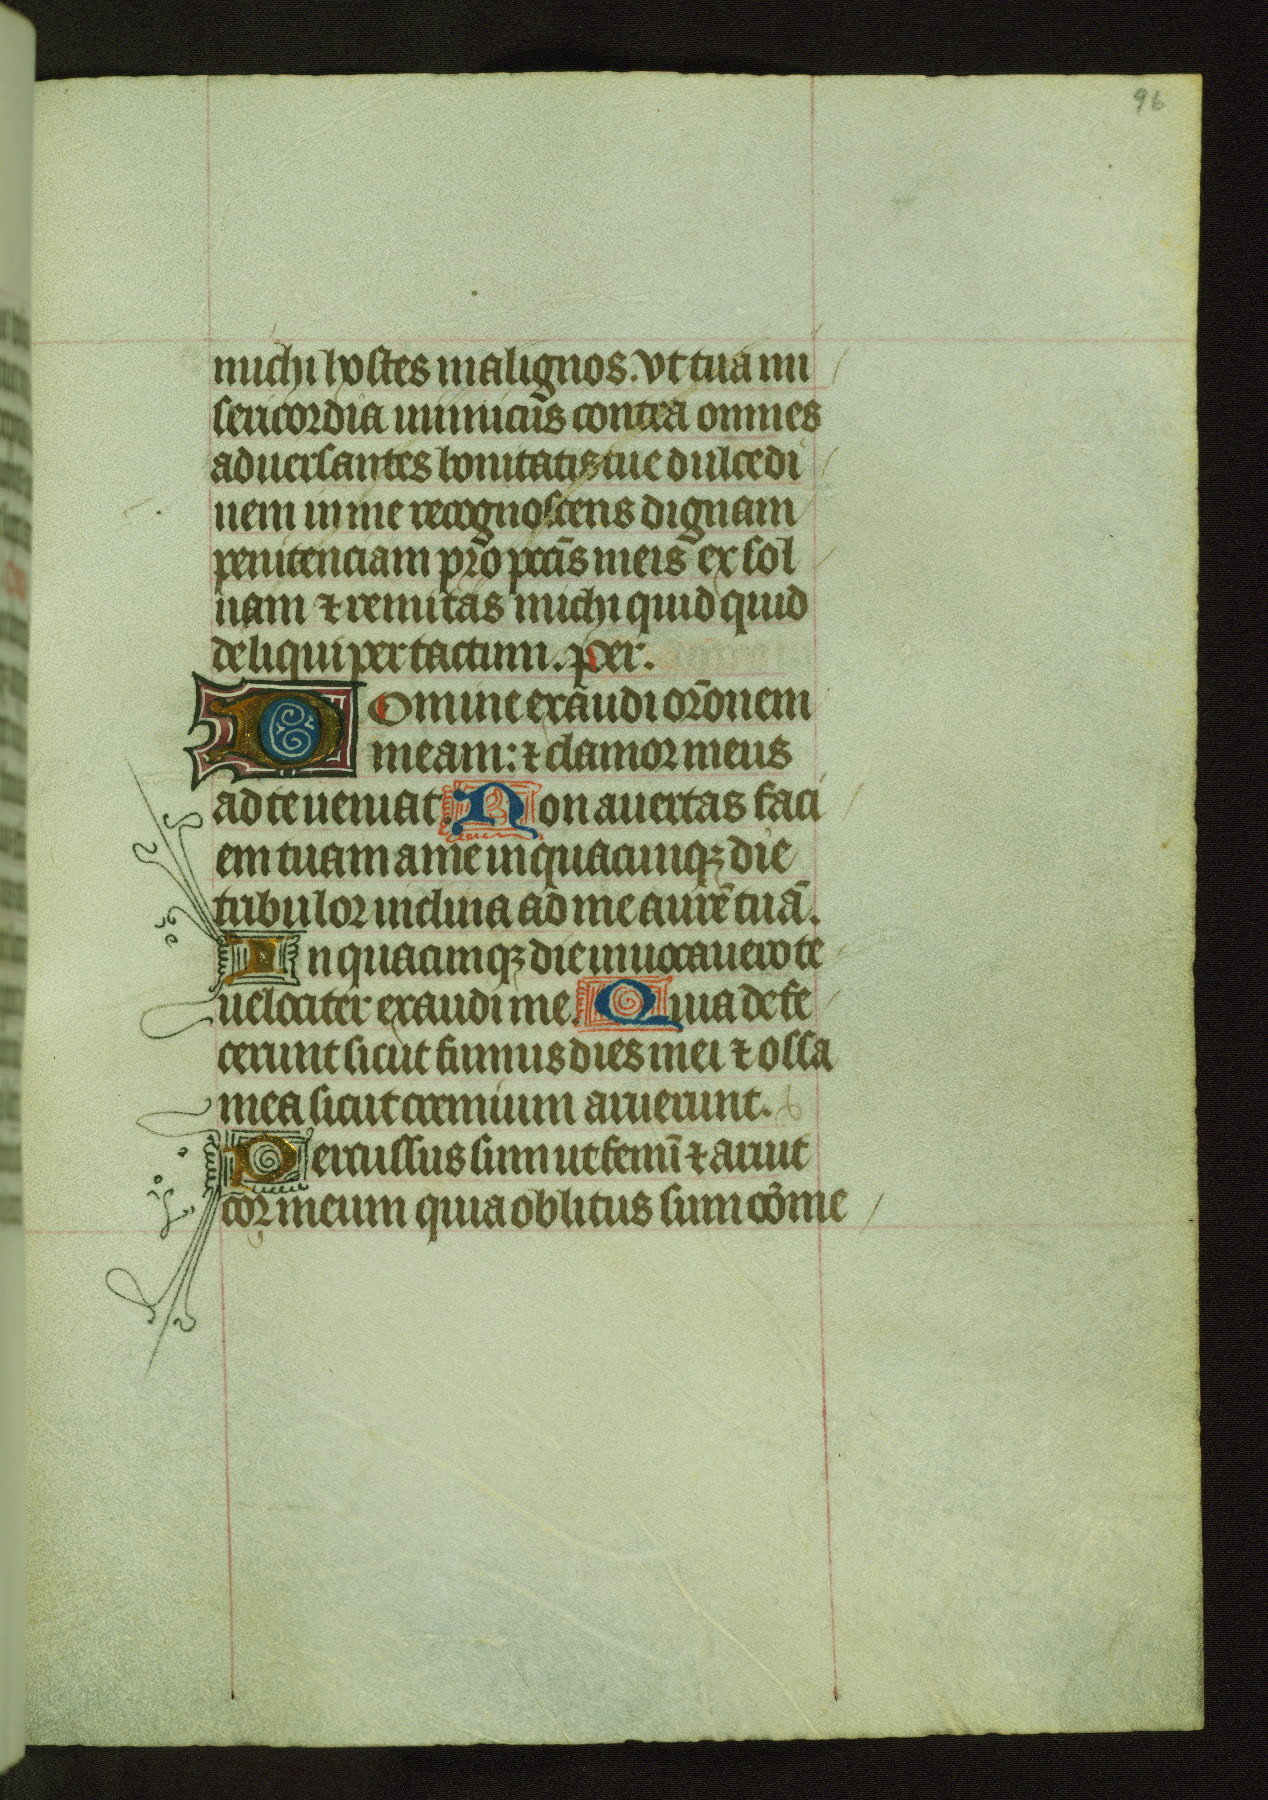 96
michi hostes malignos. Vt tua mi
sericordia munitus contra omnes
aduersantes bonitatis tue dulcedi
nem in me recognoscens dignam
penitenciam pro pctīs meis exsol
uam ⁊ remittas michi quidquid
deliqui per tactum. Per.
Domine exaudi orōnem
meam: ⁊ clamor meus
ad te ueniat. Non auertas faci
em tuam a me in quacumqꝫ die
tribulor inclina ad me aurē tuā.
In quacumqꝫ die inuocauero te
uelociter exaudi me. Quia defe
cerunt sicut fumus dies mei ⁊ ossa
mea sicut cremium aruerunt.
Percussus sum ut fenū ⁊ aruit
cor meum quia oblitus sum cōme